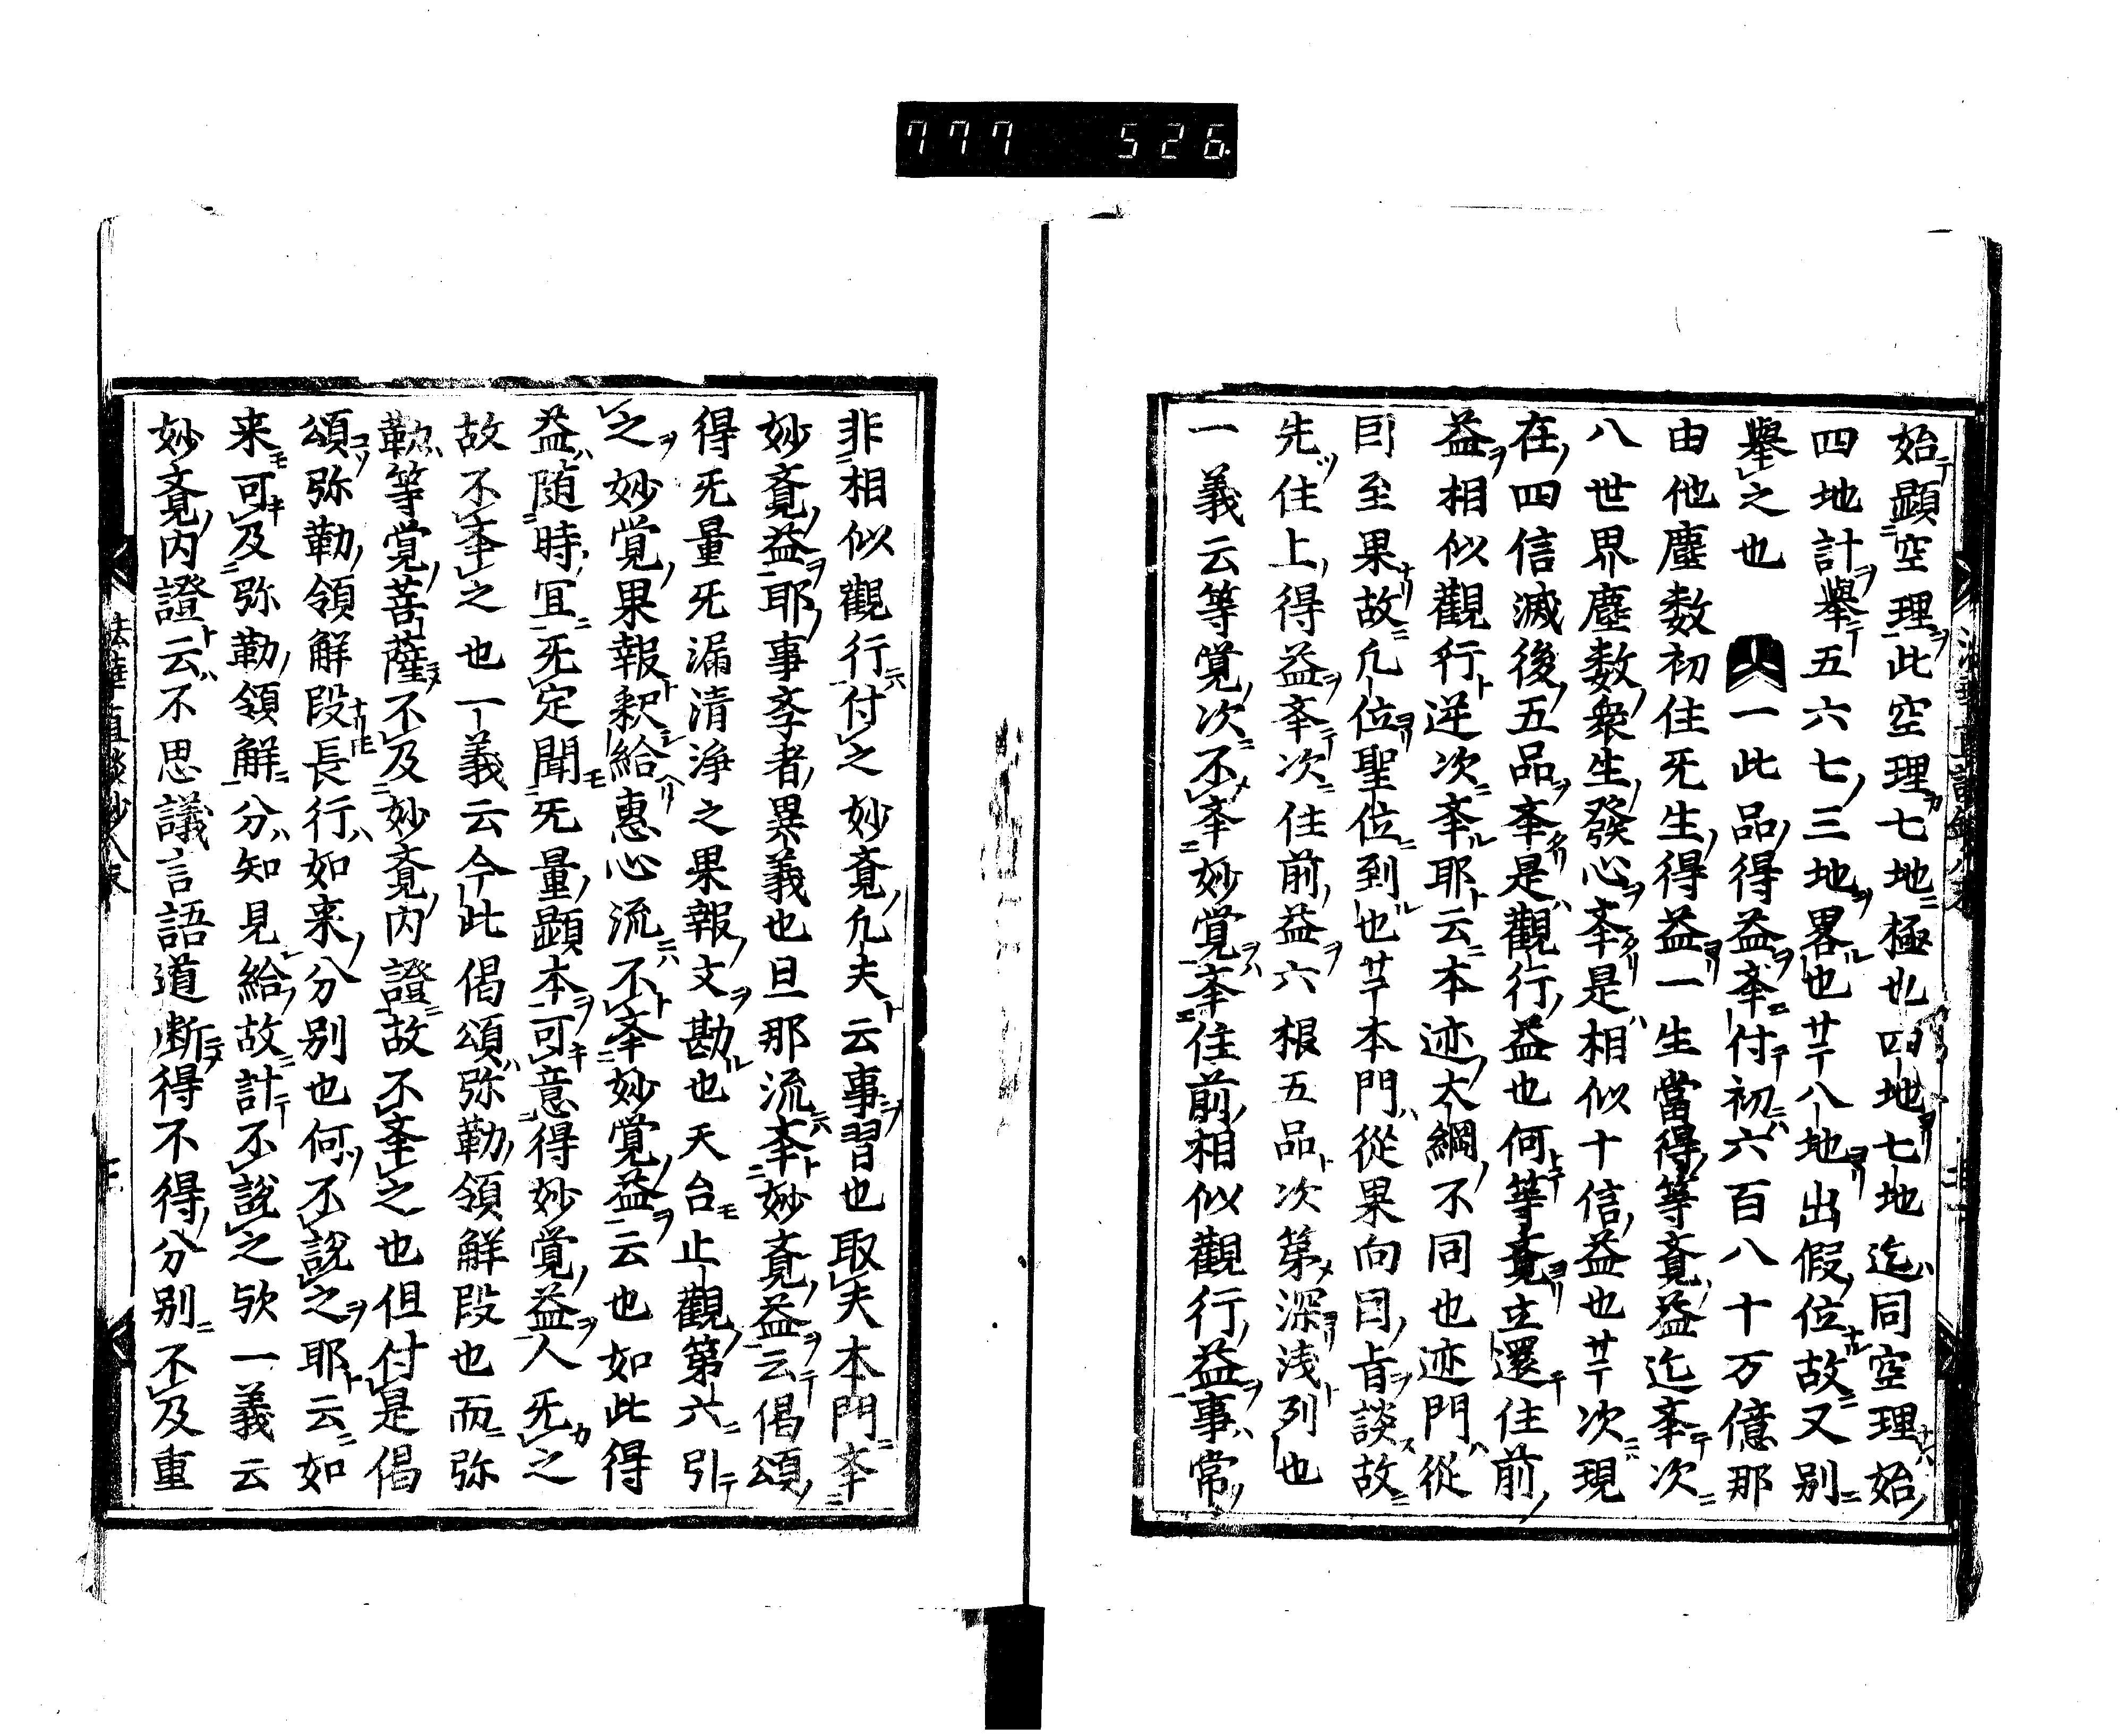 777 526
始顕空理此空理七地極也四地七地迄同空理始
四地計擧五六七三地畧也サテ八地出假位故又別
擧之也 一此品得益挙付初六百八十万億那
由他塵数初住旡生得益一生當得等覔益迄挙次
八世界塵数衆生發心挙是相似十信益也サテ次現
在四信滅後五品挙是觀行益也何等覔立還住前
益相似觀行逆次挙耶云本迹大綱不同也迹門從
因至果故凢位聖位到也サテ本門從果向因旨談故
先住上得益挙次住前益六根五品次第深浅列也
一義云等覚次不挙妙覚挙住前相似觀行益事常
非相似觀行付之妙覔凢夫云事習也取夫本門挙
妙覔益耶事斈者異義也旦那流挙妙覔益云偈頌
得旡量旡漏清浄之果報文勘也天台止觀第六引
之妙覚果報釈給惠心流不挙妙覚益云也如此得
益随時冝旡定聞旡量顕本可意得妙覚益人旡之
故不挙之也一義云今此偈頌弥勒領解段也而弥
勒等覚菩薩不及妙覔内證故不挙之也但付是偈
頌弥勒領解段長行如来分別也何不説之耶云如
来可及弥勒領解分知見給故計不説之欤一義云
妙覔内證云不思議言語道断得不得分別不及重
法華直談鈔八末